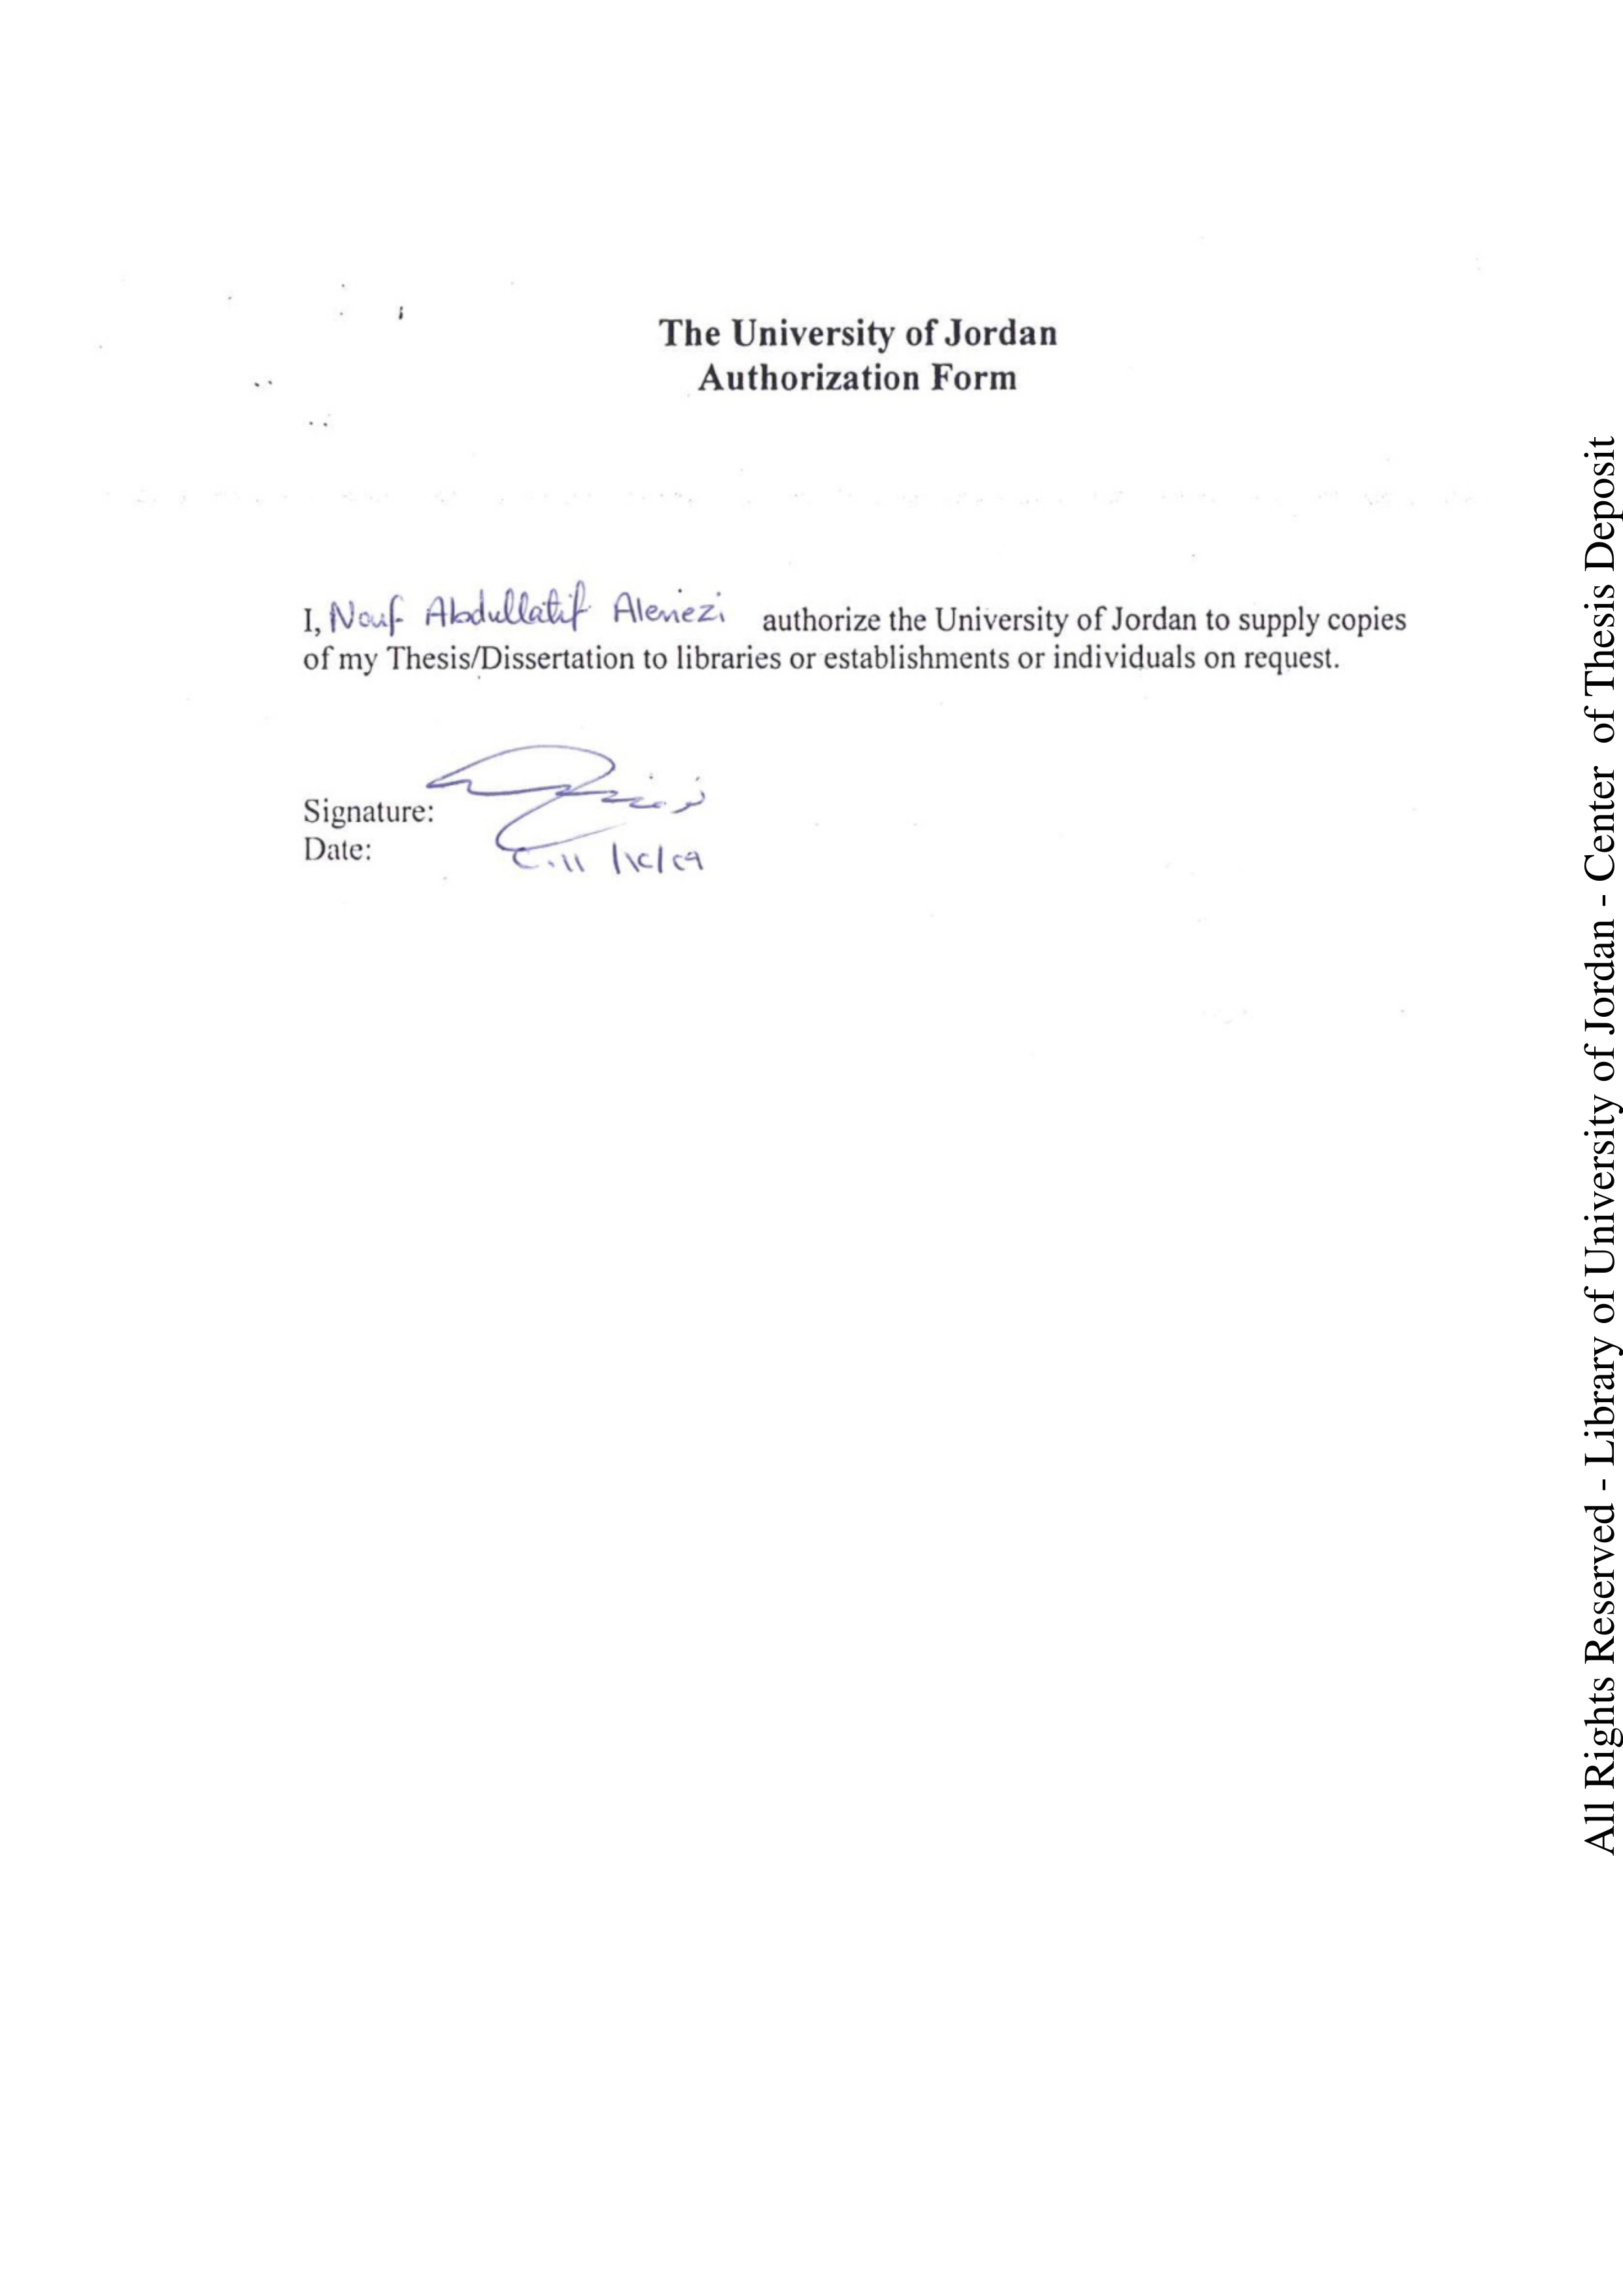 The University of Jordan
Authorization Form
I, Nouf Abdullatif Alenezi authorize the University of Jordan to supply copies
of my Thesis/Dissertation to libraries or establishments or individuals on request.
Signature:
Date: ٢٠١١ /١٢/٢٩
All Rights Reserved - Library of University of Jordan - Center of Thesis Deposit